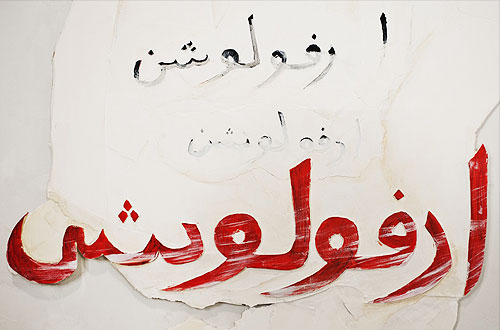 ارفولوشن
ارفولوشن
ارفولوشن